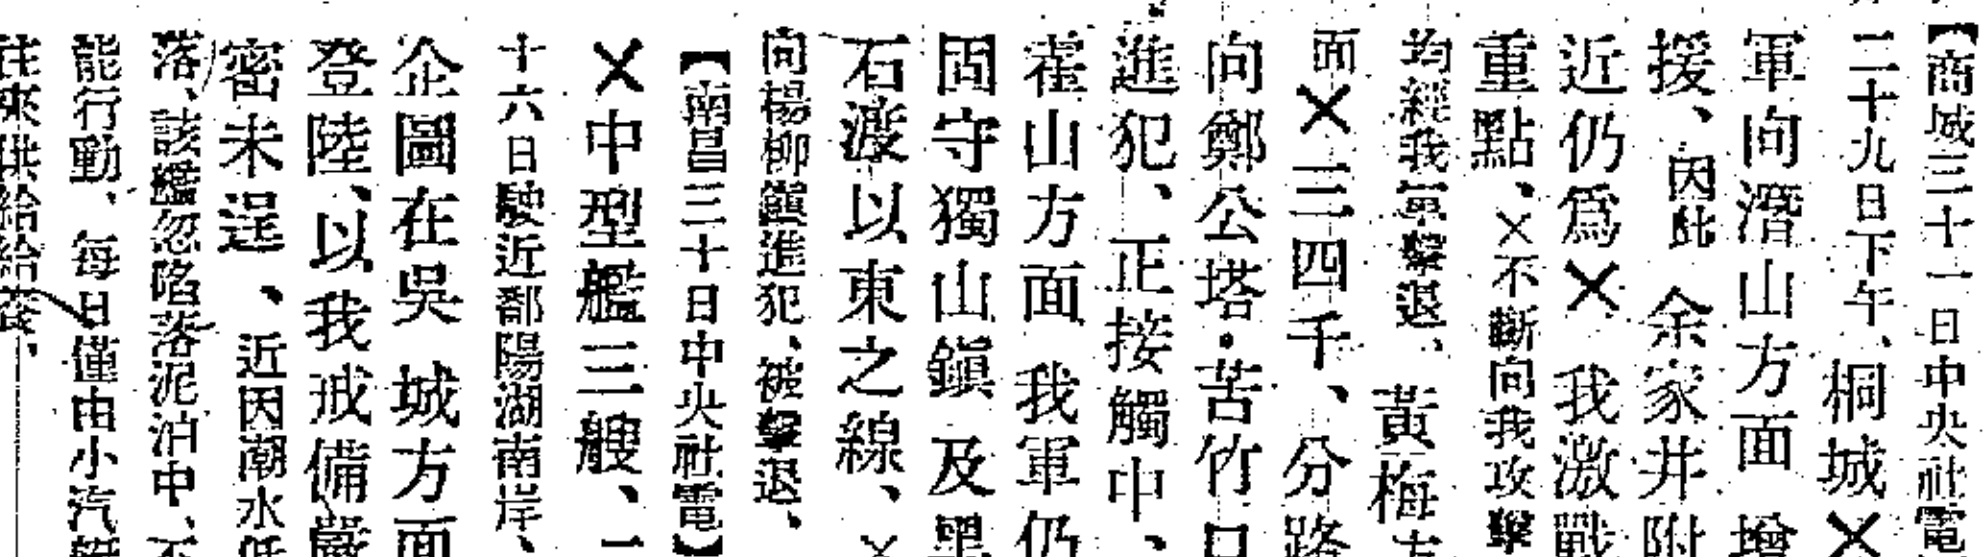 【商城三十一日中央社電
二十九日下午、桐城✕
軍向潛山方面增
援、因此余家井附
近仍爲✕我激戰
重點、✕不斷向我攻擊
均經我軍擊退、黃梅方
面✕三四千、分路
向鄭公塔・苦竹口
進犯、正接觸中、
霍山方面我軍仍
固守獨山鎭及黑
石渡以東之線、✕
向楊柳鎭進犯、被擊退、
【南昌三十日中央社電】
✕中型艦三艘、二
十六日駛近鄱陽湖南岸、
企圖在吳城方面
登陸、以我戒備嚴
密未逞、近因潮水低
落、該艦忽陷落泥泊中、不
能行動、每日僅由小汽艇
往來供給給養、